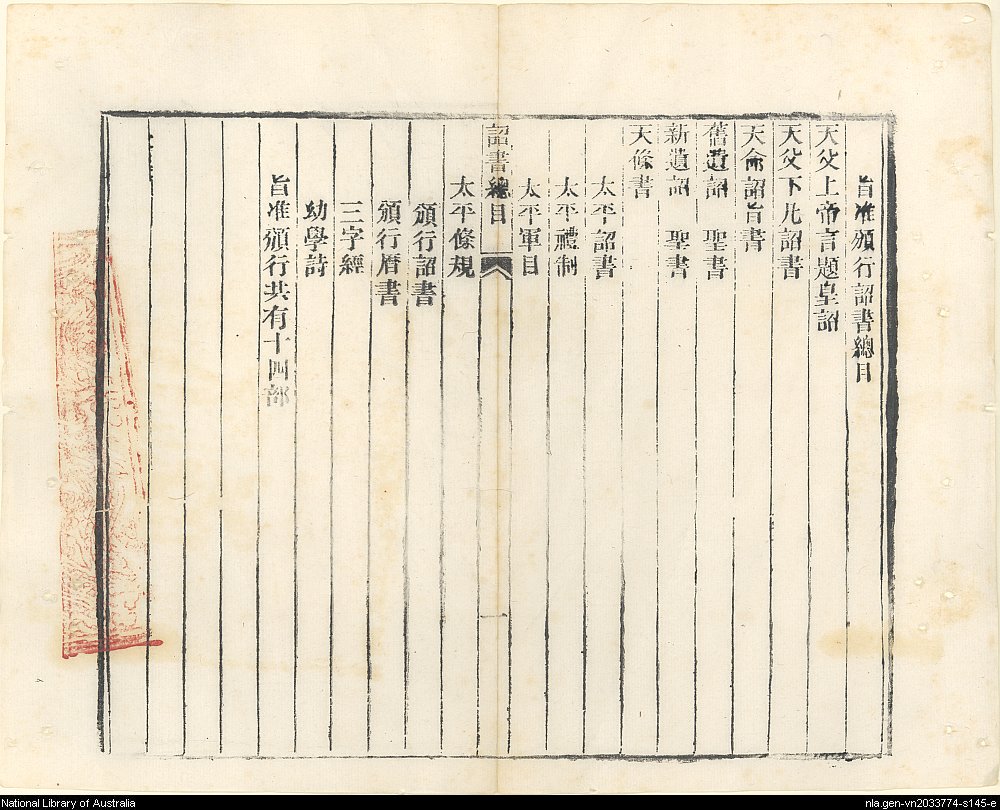 旨准頒行詔書總目
天父上帝言題皇詔
天父下凡詔書
天命詔旨書
舊遺詔 聖書
新遺詔 聖書
天條書
太平詔書
太平禮制
太平軍目
詔書總目 一
太平條規
頒行詔書
頒行曆書
三字經
幼學詩
旨准頒行共有十四部
National Library of Australia
nla.gen-vn2033774-s145-e